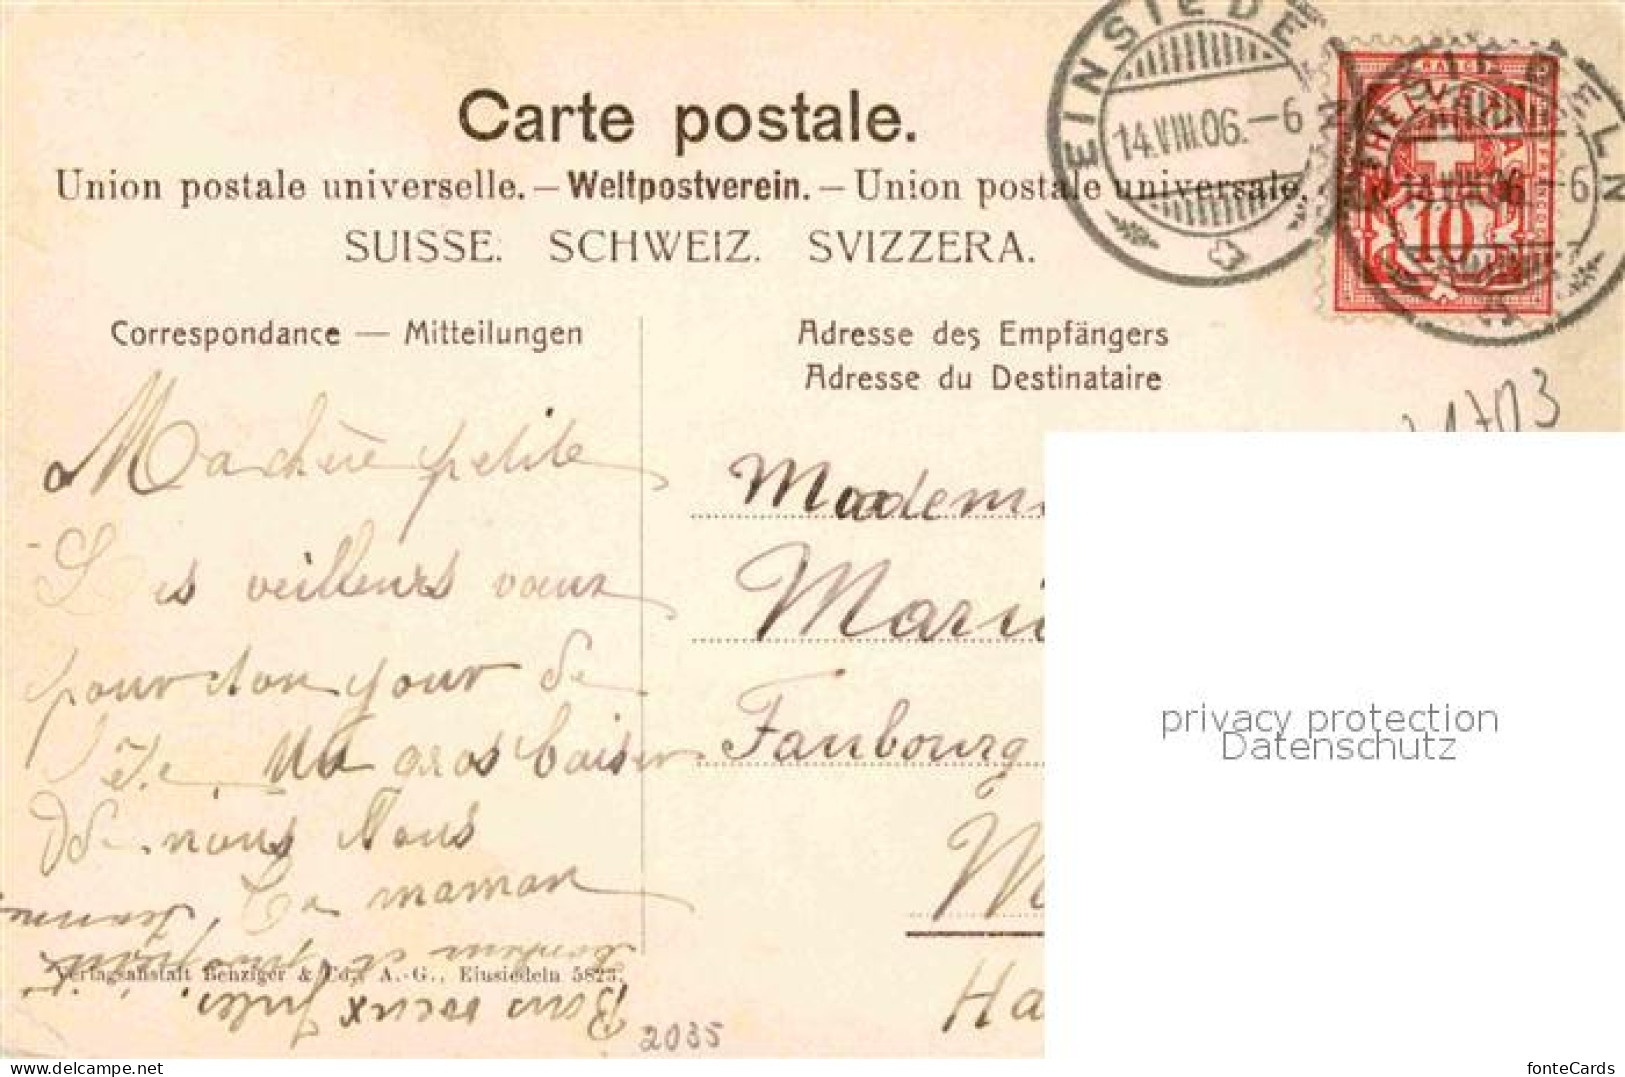 EINSIEDELN
14.VIII.06.-6
EINSIEDELN
14.VIII.06.-6
HELVETIA
10
Carte postale.
Union postale universelle. — Weltpostverein. — Union postale universale.
SUISSE. SCHWEIZ. SVIZZERA.
Correspondance — Mitteilungen
Adresse des Empfängers
Adresse du Destinataire
Ma chère petite
veilleurs vœux
pour ton jour de
fête. Un gros baiser
de nous tous
Ta maman
Jeanne
Bons vœux Jules
Verlagsanstalt Benziger & Co., A.-G., Einsiedeln 5823.
2035
Madem
Mari
Faubourg
Ha
privacy protection
Datenschutz
fonteCards